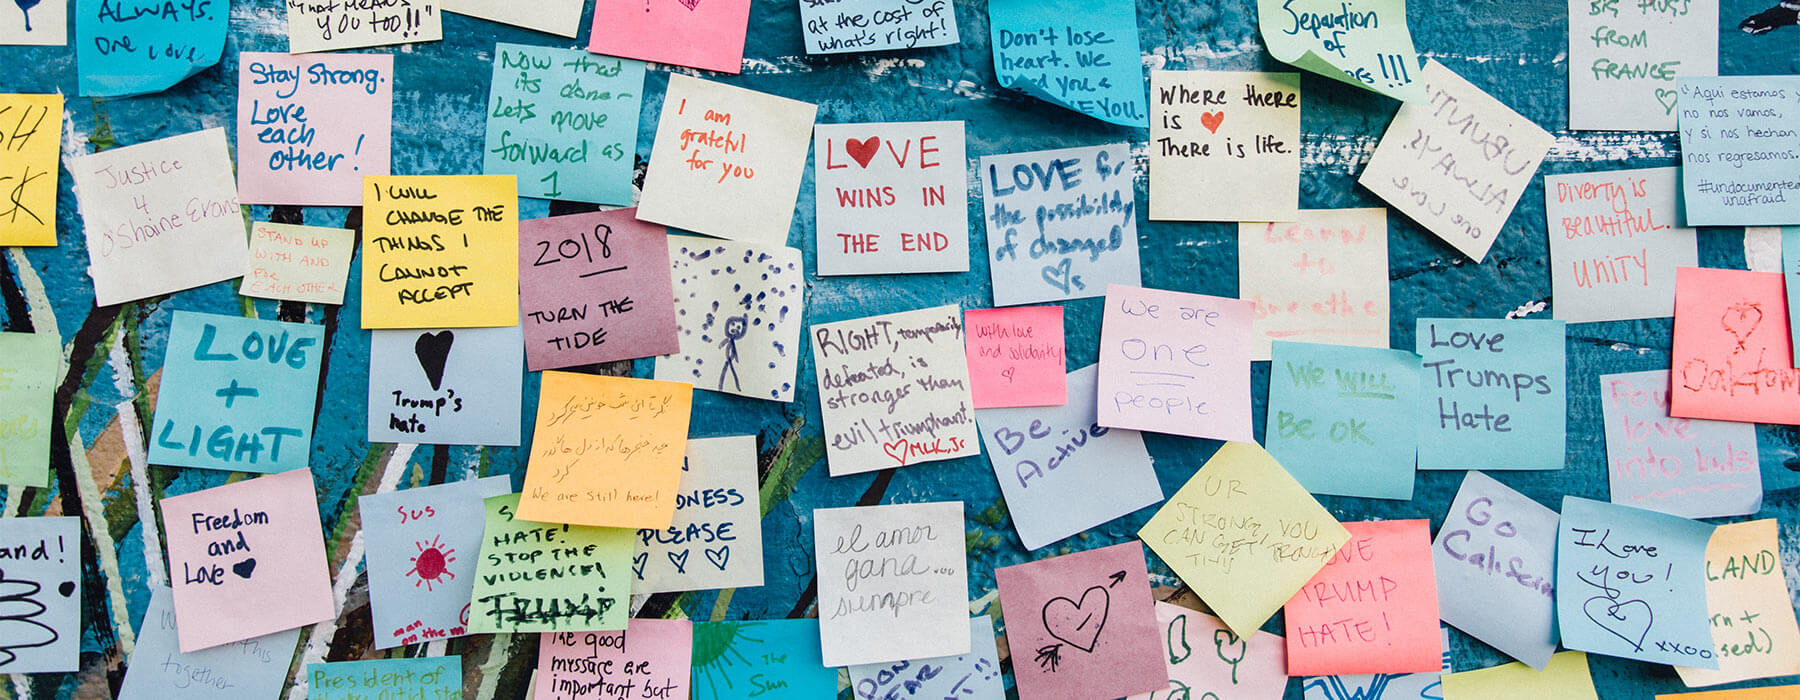 ALWAYS.
one love
"That means
you too!!"
at the cost of
what's right!
Don't lose
heart. We
need you &
LOVE YOU.
Separation
of
!!!
BIG HUGS
FROM
FRANCE
Stay Strong.
Love
each
other!
Now that
its done-
Lets move
forward as
1
I am
grateful
for you
LOVE
WINS IN
THE END
LOVE for
the possibility
of changed
Where there
is
There is life.
UBUNTU
ALWAYS
one love
"Aqui estamos y
no nos vamos,
y si nos hechan
nos regresamos."
#undocumented
unafraid
Justice
4
O'Shaine Evans
STAND UP
WITH AND
FOR
EACH OTHER
I WILL
CHANGE THE
THINGS I
CANNOT
ACCEPT
2018
TURN THE
TIDE
Learn
to
Breathe
Diverty is
Beautiful.
UNITY
LOVE
+
LIGHT
Trump's
hate
RIGHT, temporarily
defeated, is
stronges than
evil triumphant.
MLK, Jr
with love
and solidarity
We are
one
people.
We WILL
Be OK
Love
Trumps
Hate
love
into kids
Oaktown
We are still here!
Be
Active
PLEASE
Freedom
and
Love
sus
man
on the m
HATE!
STOP THE
VIOLENCE!
el amor
gana...
siempre
UR
STRONG, YOU
CAN GET THROUGH
THIS
TRUMP
HATE!
Go
Califor
I Love
you!
xxoo
LAND
and!
together
President of
The good
message are
important but
The
Sun